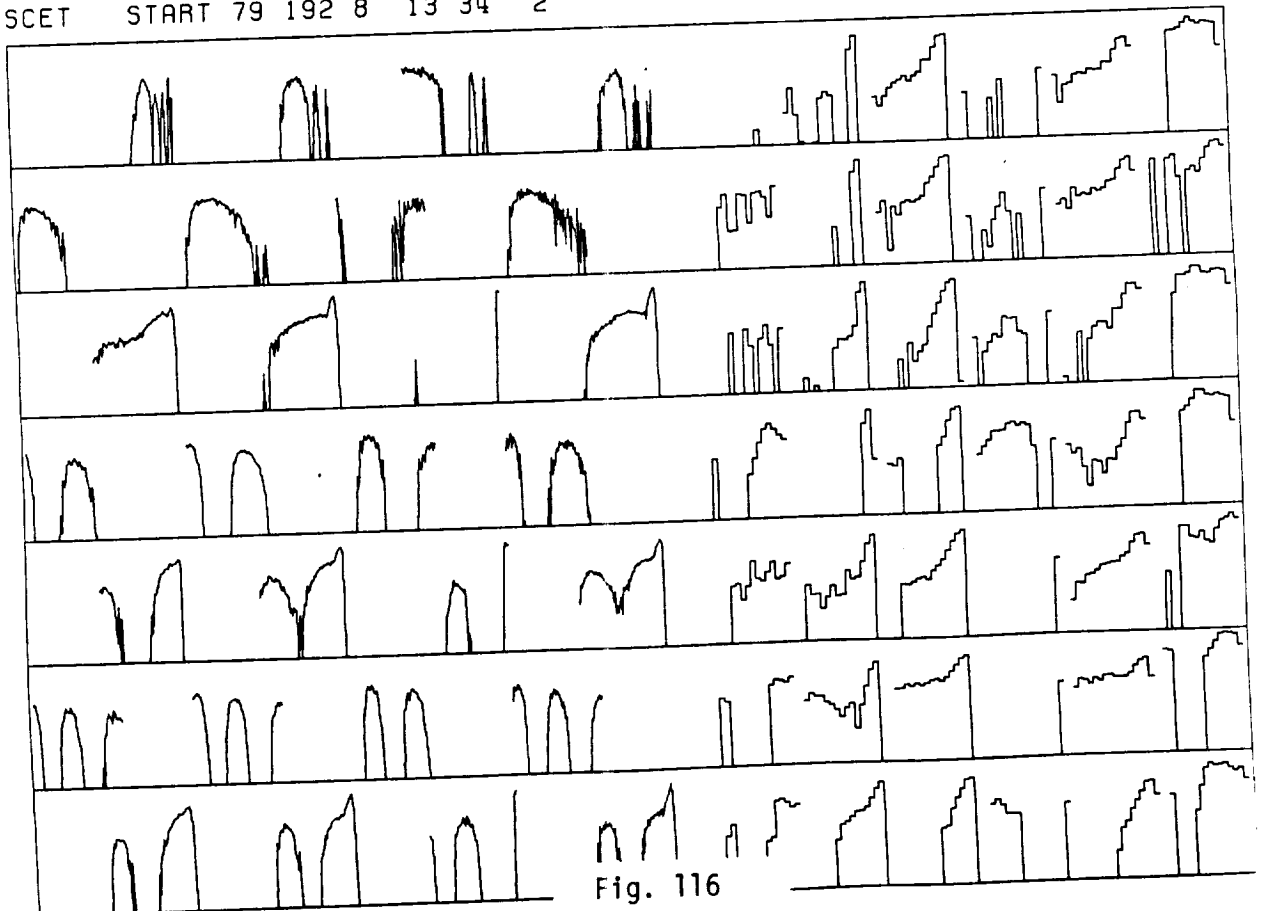 SCET START 79 192 8 13 34 2
Fig. 116